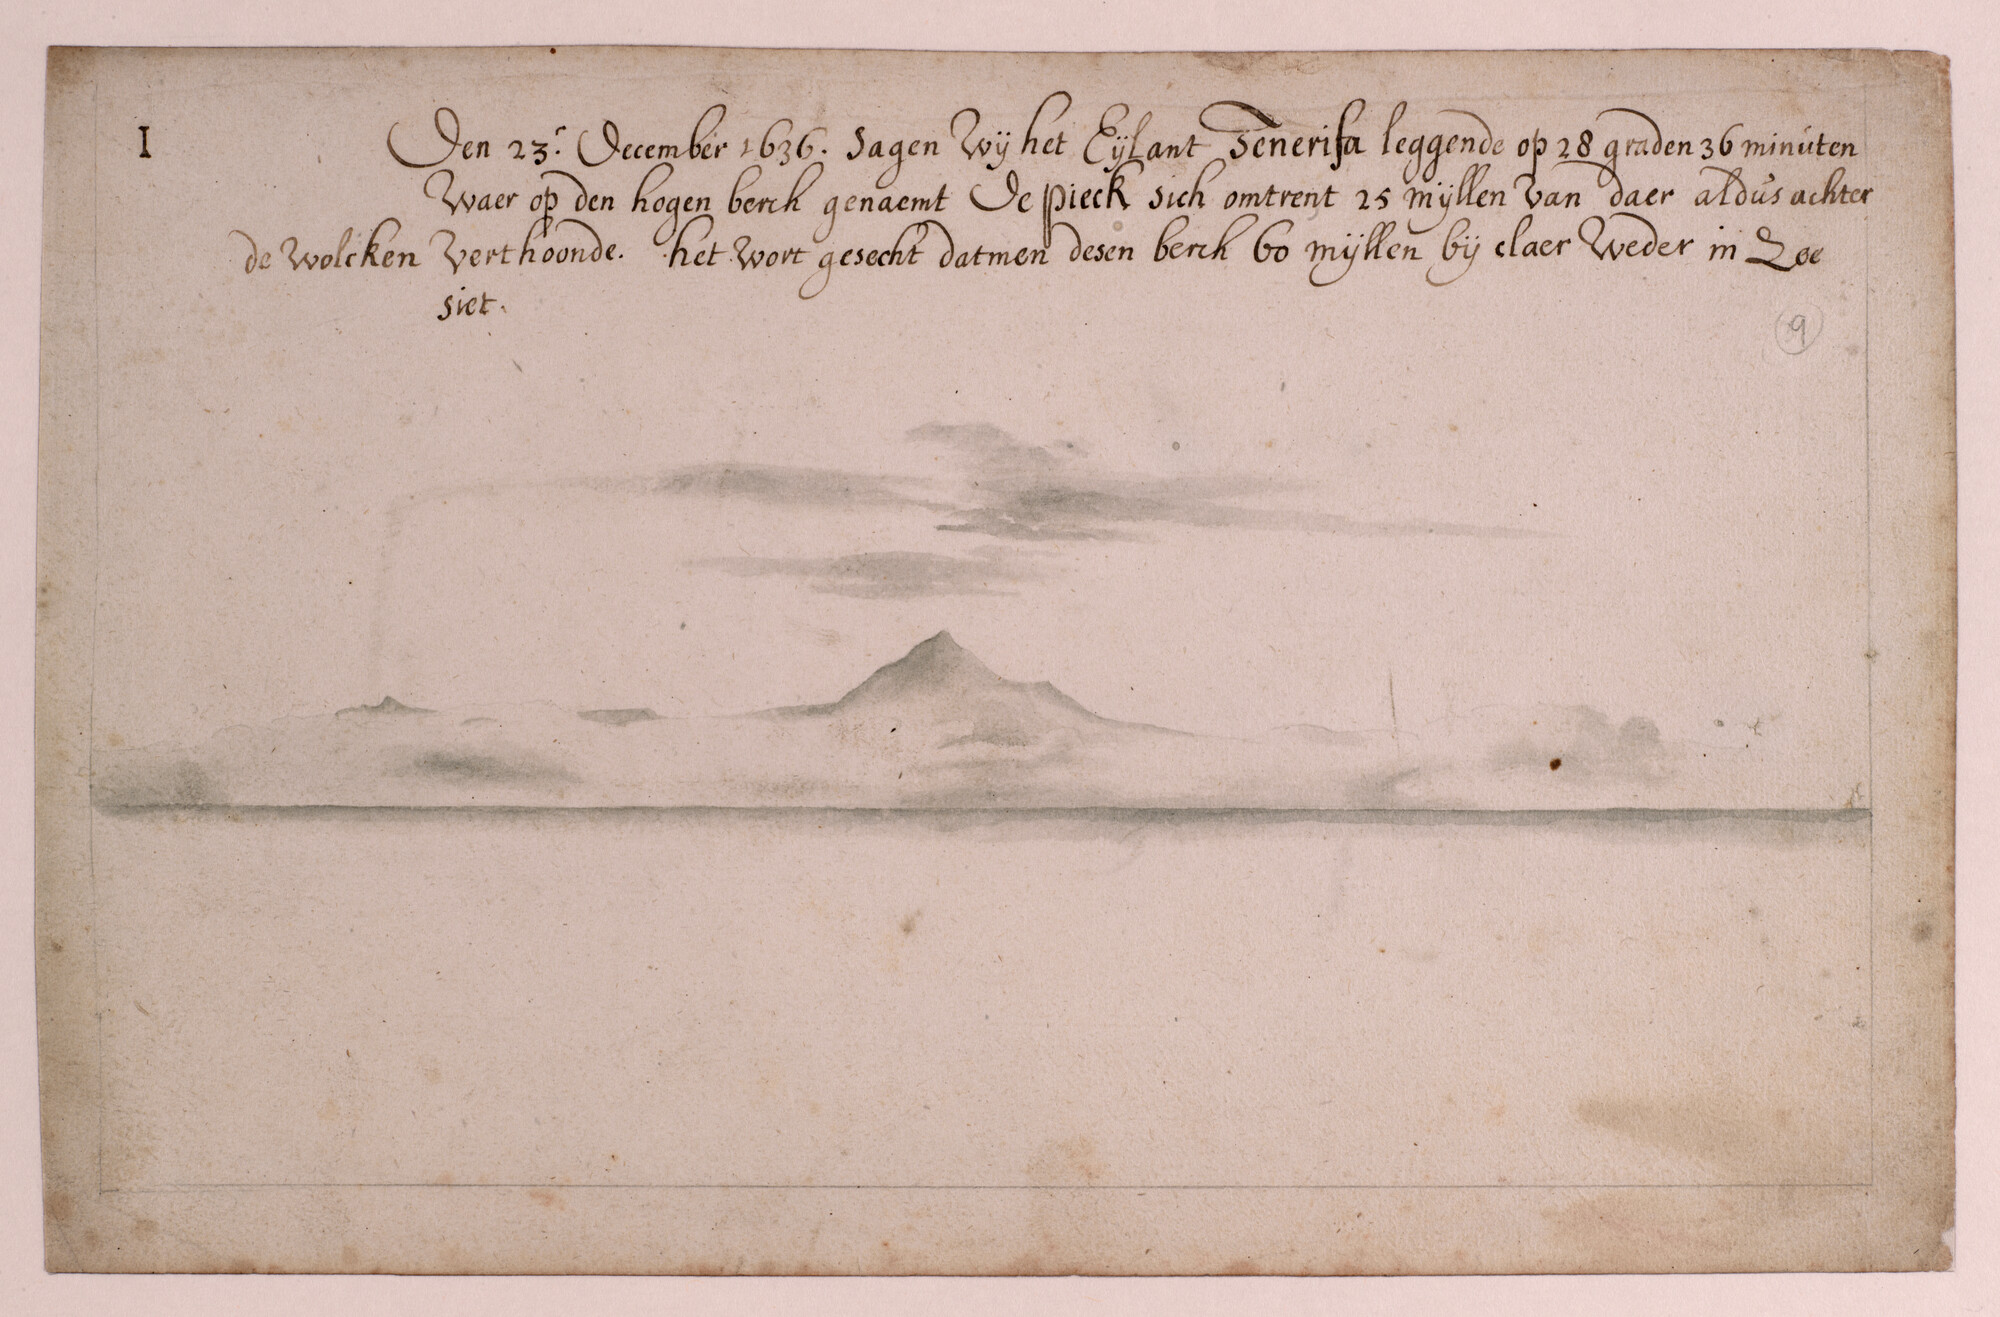 I
Den 23.r December 1636. Sagen Wij het Eijlant Tenerifa leggende op 28 graden 36 minúten
Waer op den hogen berch genaemt De pieck sich omtrent 25 mijllen van daer aldús achter
de wolcken Verthoonde. het wort gesecht datmen desen berch 60 mijllen bij claer Weder in Zee
siet.
9